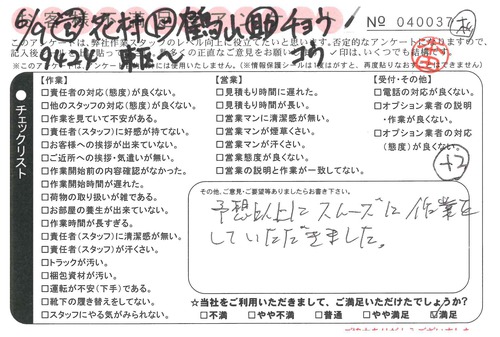 № 040037
このアンケートは、弊社作業スタッフのレベル向上に役立てたいと思います。否定的なアンケートになりますので、
チェックリスト
【作業】
□責任者の対応(態度)が良くない。
□他のスタッフの対応(態度)が良くない。
□作業を見ていて不安がある。
□責任者(スタッフ)に好感が持てない。
□お客様への挨拶が出来ていない。
□ご近所への挨拶・気遣いが無い。
□作業開始前の内容確認がなかった。
□作業開始時間が遅れた。
□荷物の取り扱いが雑である。
□お部屋の養生が出来ていない。
□作業時間が長すぎる。
□責任者(スタッフ)に清潔感が無い。
□責任者(スタッフ)が汗くさい。
□トラックが汚い。
□梱包資材が汚い。
□運転が不安(下手)である。
□靴下の履き替えをしてない。
□スタッフにやる気がみられない。
【営業】
□見積もり時間に遅れた。
□見積もり時間が長い。
□営業マンに清潔感が無い。
□営業マンが煙草くさい。
□営業マンが汗くさい。
□営業態度が良くない。
□営業の説明と作業が一致してない。
【受付・その他】
□電話の対応が良くない。
□オプション業者の説明
・作業が良くない。
□オプション業者の対応
(態度)が良くない。
+2
その他、ご意見・ご要望等ありましたらお書き下さい。
予想以上にスムーズに作業を
していただきました。
☆当社をご利用いただきまして、ご満足いただけたでしょうか?
□不満 □やや不満 □普通 □やや満足 ☑満足